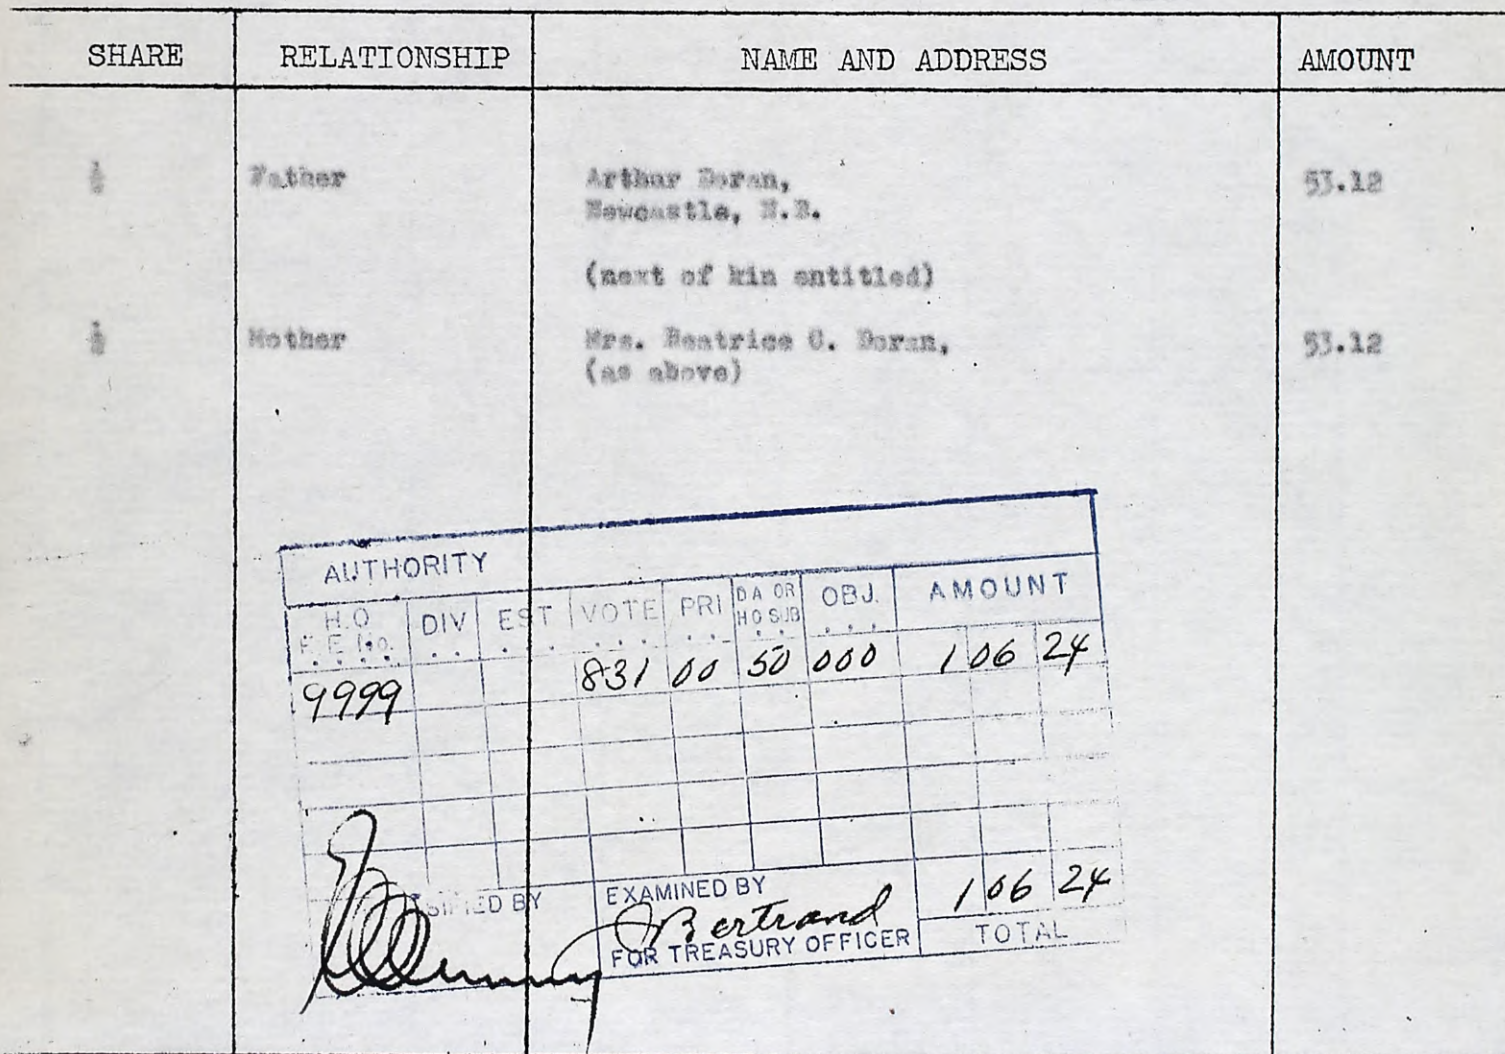 SHARE RELATIONSHIP NAME AND ADDRESS AMOUNT
½ Father Arthur Doran, 53.12
Newcastle, N.B.
(next of kin entitled)
½ Mother Mrs. Beatrice C. Doran, 53.12
(as above)
AUTHORITY
H.O. F.E. No. DIV EST VOTE PRI DA OR HO SUB OBJ. AMOUNT
9999 831 00 50 000 1 06 24
EXAMINED BY 1 06 24
Bertrand
FOR TREASURY OFFICER TOTAL